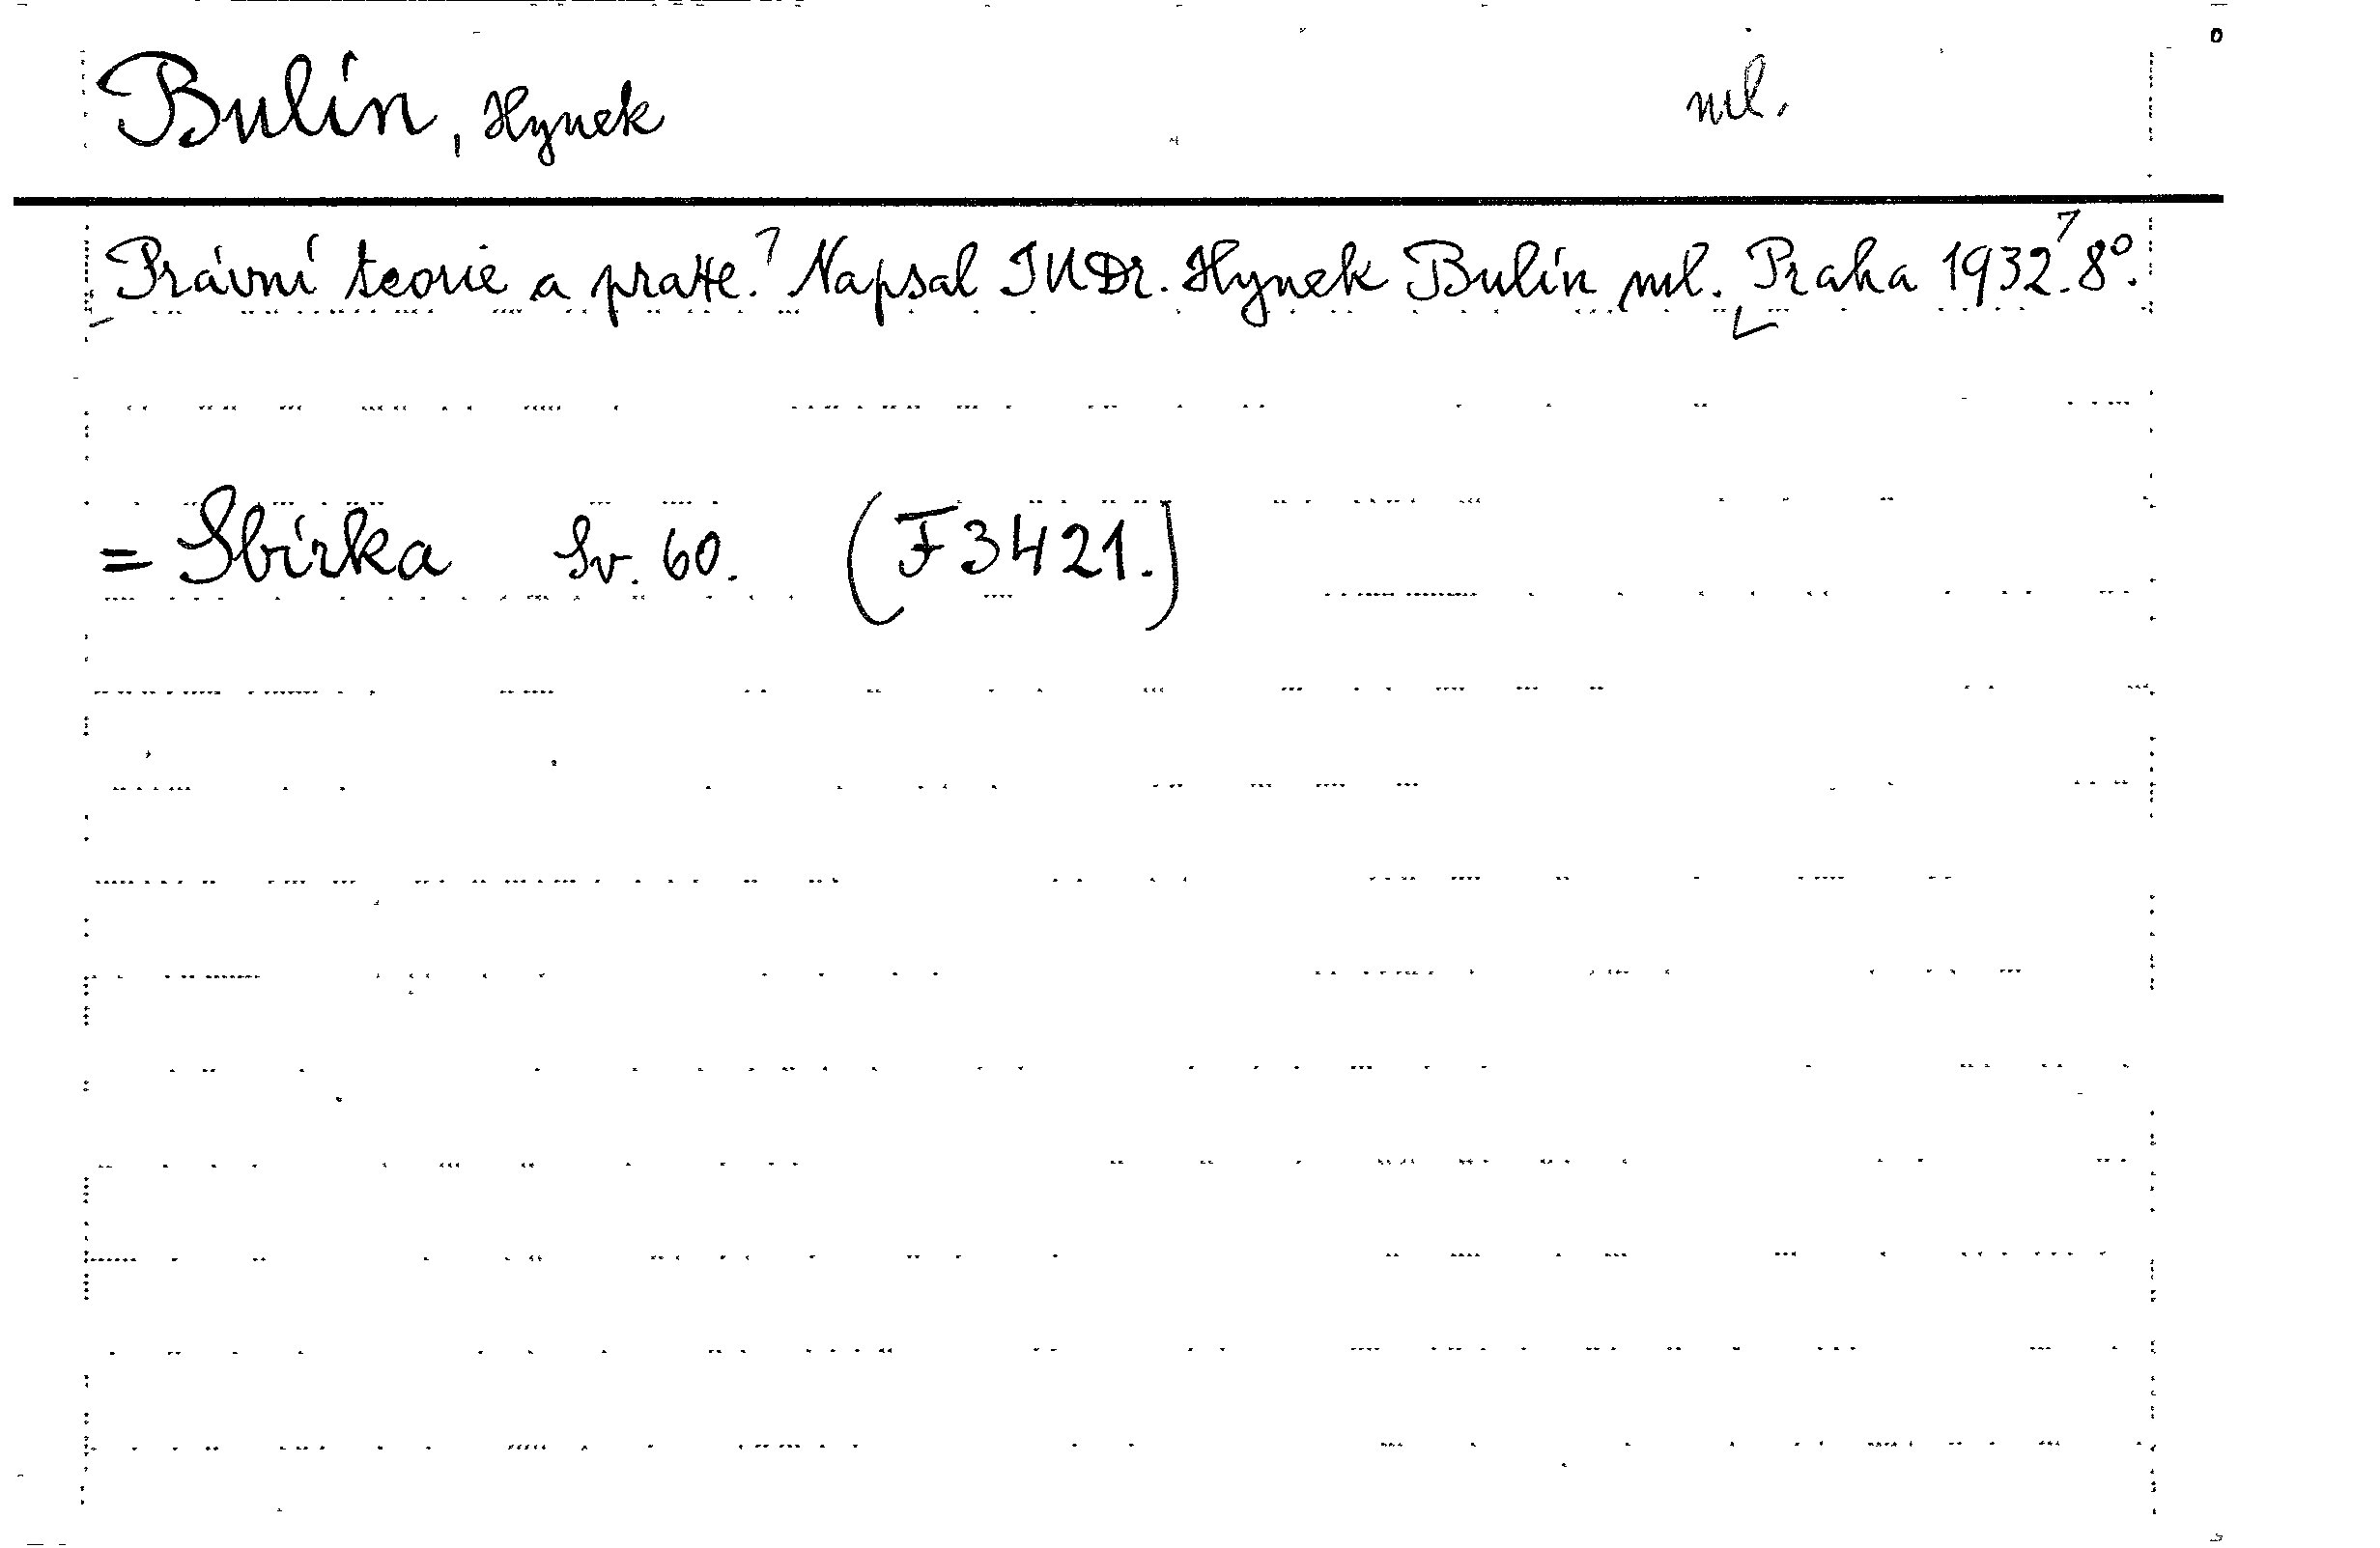 Bulín, Hynek ml.
Právní teorie a praxe. Napsal JUDr. Hynek Bulín ml. Praha 1932. 8°.
= Sbírka Sv. 60. (F 3421.)